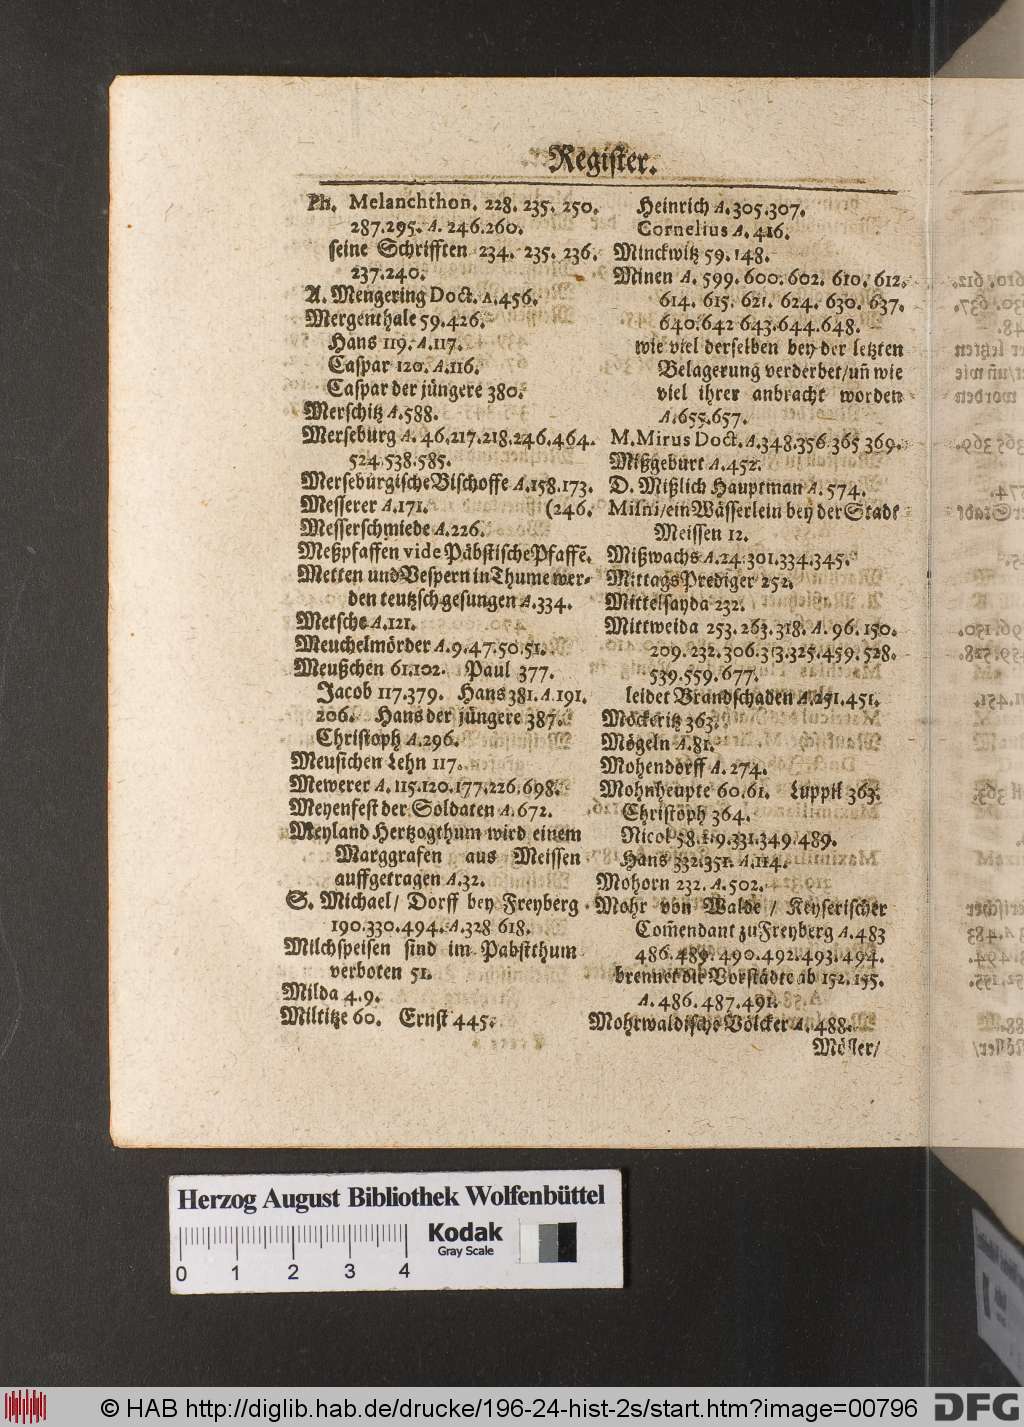 Register.
Ph. Melanchthon. 228. 235. 250.
287.295. A. 246.260.
seine Schrifften 234. 235. 236.
237.240.
A. Mengering Doct. A.456.
Mergenthale 59.426.
Hans 119. A.117.
Caspar 120. A.116.
Caspar der jüngere 380.
Merschitz A.588.
Merseburg A. 46.217.218.246.464.
524.538.585.
Merseburgische Bischoffe A.158.173.
Messerer A.171. (246.
Messerschmiede A.226.
Meßpfaffen vide Päbstische Pfaffē.
Metten und Vespern in Thume wer-
den teutzsch gesungen A.334.
Metsche A.121.
Meuchelmörder A.9.47.50.51.
Meußchen 61.102. Paul 377.
Jacob 117.379. Hans 381. A.191.
206. Hans der jüngere 387.
Christoph A.296.
Meusichen Lehn 117.
Mewerer A.115.120.177.226.698.
Meyenfest der Soldaten A.672.
Meyland Hertzogthum wird einem
Marggrafen aus Meissen
auffgetragen A.32.
S. Michael/ Dorff bey Freyberg
190.330.494. A.328 618.
Milchspeisen sind im Pabstthum
verboten 51.
Milda 4.9.
Miltitze 60. Ernst 445.
Heinrich A.305.307.
Cornelius A.416.
Minckwitz 59.148.
Minen A. 599.600.602. 610. 612.
614. 615. 621. 624. 630. 637.
640.642 643.644.648.
wie viel derselben bey der letzten
Belagerung verderbet/uñ wie
viel ihrer anbracht worden
A.655.657.
M. Mirus Doct. A.348.356 365 369.
Mißgeburt A.452.
D. Mißlich Hauptman A.574.
Misni/ein Wässerlein bey der Stadt
Meissen 12.
Mißwachs A.24.301.334.345.
Mittags Prediger 252.
Mittelsayda 232.
Mittweida 253.263.318. A. 96.150.
209.232.306.313.325.459.528.
539.559.677.
leidet Brandschaden A.251.451.
Möckeritz 363.
Mögeln A.81.
Mohendorff A.274.
Mohnheupte 60.61. Luppil 363.
Christoph 364.
Nicol 58.119.331.349.489.
Hans 332.351. A.114.
Mohorn 232. A.502.
Mohr von Walde / Keyserischer
Com̃endant zu Freyberg A.483
486.489.490.492.493.494.
brennet die Vorstädte ab 152.155.
A.486.487.491.
Mohrwaldische Völcker A.488.
Möller/
Herzog August Bibliothek Wolfenbüttel
Kodak
Gray Scale
0 1 2 3 4
© HAB http://diglib.hab.de/drucke/196-24-hist-2s/start.htm?image=00796
DFG